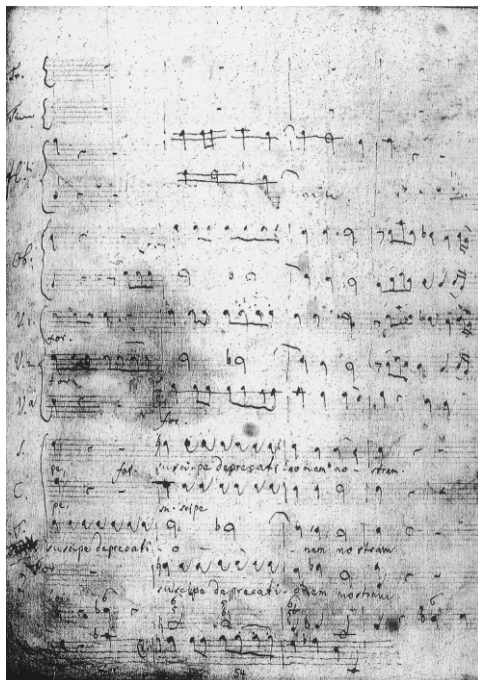 Ob:
V.1:
for.
V.2
V.a
for.
S.
pe, for. suscipe deprecati-onem no-stram.
C.
pe. su-scipe
suscipe deprecati-o-nem nostram
suscipe deprecati-onem nostram
54